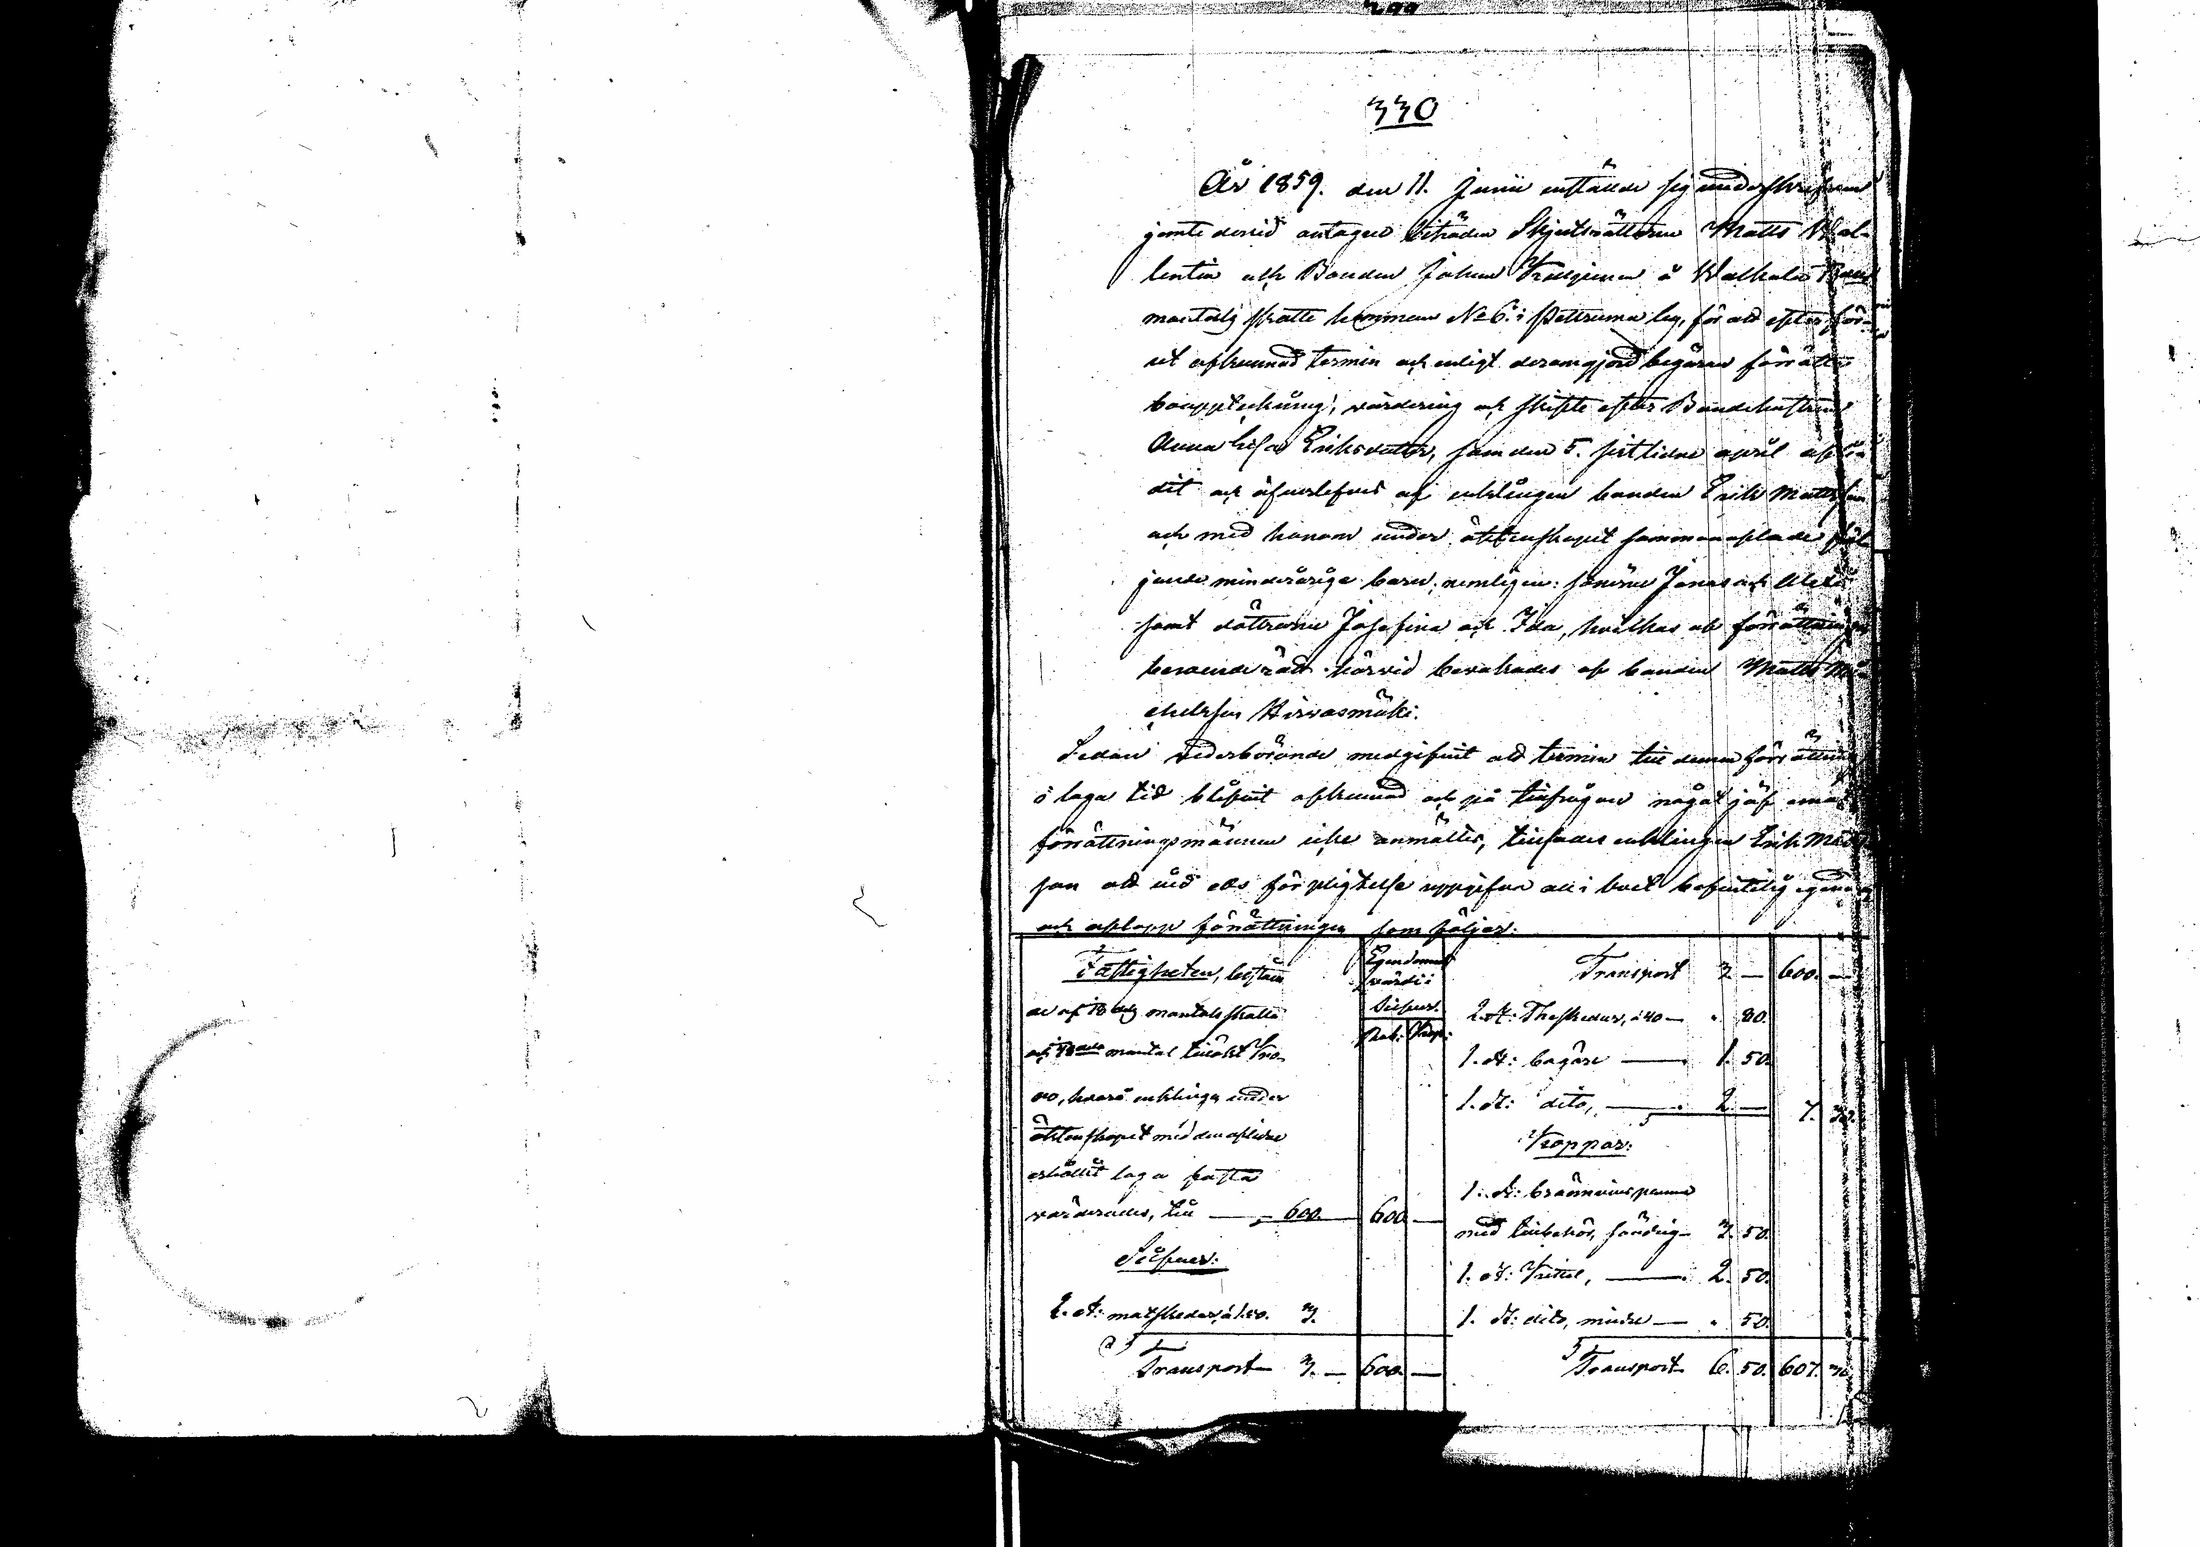 330
År 1859. den 11. Junii instälde sig undertecknad
jemte dervid antagne biträden Skjutsrättaren Matts Wal-
lentin och Bonden Johan
mantals skatte hemman No 6. i by, för att efter för-
ut utkunnad termin och enligt deromgjord begäran förrätta
bouppteckning, värdering och skifte efter Bondehustrun
Anna Lisa Eriksdotter, som den 5. sistlidne april aflidit
och öfverlefves af enklingen bonden Erik Mattsson
och med honom under äktenskapet sammanaflade föl-
jande minderåriga barn, nemligen: sönerne Jonas och
samt döttrarne Josefina och Ida, hvilkas af förrättningen
beroende rätt härvid bevakades af bonden Matts Mi-
chelsson Hirvasmäki.
Sedan vederbörande medgifvit att termin till denna förrättning
i laga tid blifvit utkunnad och på tillfrågan något jäf emot
förrättningsmännen icke anmältes, tillsades enklingen Erik Matts-
son att vid eds förpligtelse uppgifva all i boet befintelig egendom
och aflopp förrättningen som följer:
Fastigheten, bestå-
de af mantals skatte
och mantal tillökt Kro-
no, hvarå enklingen under
äktenskapet med den aflidne
erhållit laga fasta
värderades, till — 600. 600 —
Silfver:
2. st: matskedar, á 1.50. 3.
Transport 3. — 600. —
Egendomens
värde i
Silfver.
Rub: Kop:
Transport 3 — 600. —
2. st: Theskedar, á 40 — . 80.
1. st: bägare — 1. 50.
1. st: dito, — 2 — 7. 30.
Koppar:
1. st: brännvins panna
med tillbehör, söndrig — 3. 50.
1. st: Kittel, — 2. 50.
1. st: dito, mindre — . 50.
Transport 6. 50. 607. 30.